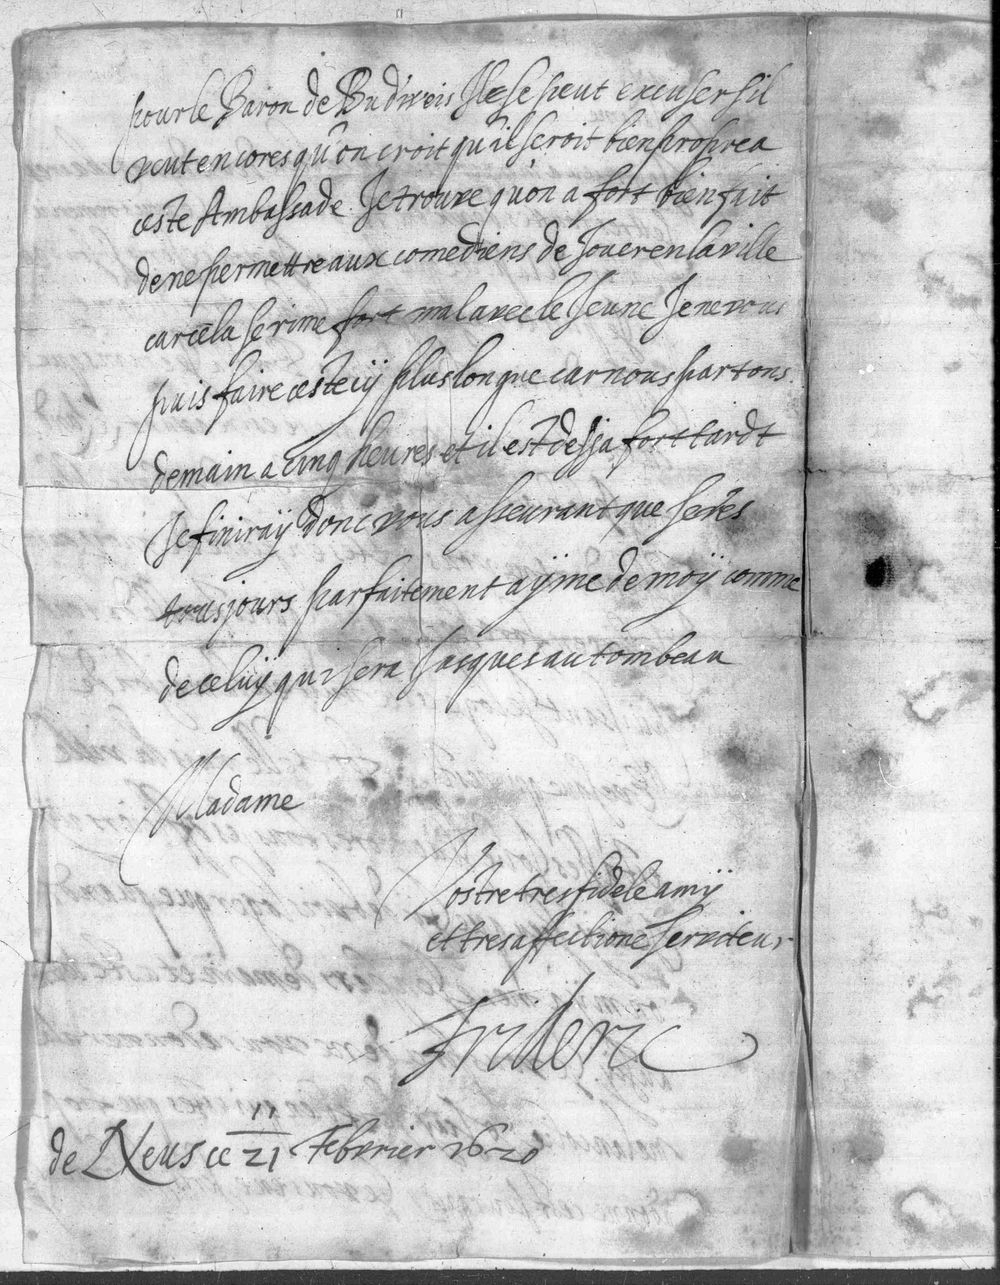 pour le Baron de Budweis Il se peut excuser sil
veut encores qu'on croit qu'il seroit bien propre a
ceste Ambassade. Je trouve qu'on a fort bien fait
de ne permettre aux comediens de Jouer en la ville
car cela se rime fort mal avec le Jeune Je ne vous
puis faire cestecÿ plus longue car nous partons
demain a cinq heures et il est desja fort tardt
Je finiraÿ donc vous asseurant que serés
tousjours parfaitement aÿme de moÿ comme
de celuÿ qui sera Jusques au tombeau
Madame
Vostre tres fidele amÿ
et tres affectioné serviteur
Frideric
11
de Neus ce 21 Febvrier 1620